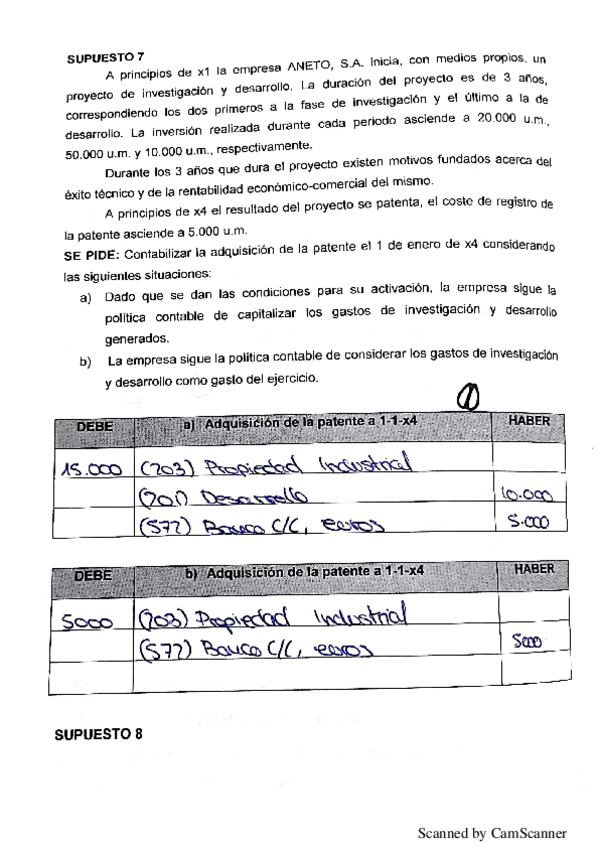 SUPUESTO 7
A principios de x1 la empresa ANETO, S.A. inicia, con medios propios, un
proyecto de investigación y desarrollo. La duración del proyecto es de 3 años,
correspondiendo los dos primeros a la fase de investigación y el último a la de
desarrollo. La inversión realizada durante cada periodo asciende a 20.000 u.m.,
50.000 u.m. y 10.000 u.m., respectivamente.
Durante los 3 años que dura el proyecto existen motivos fundados acerca del
éxito técnico y de la rentabilidad económico-comercial del mismo.
A principios de x4 el resultado del proyecto se patenta, el coste de registro de
la patente asciende a 5.000 u.m.
SE PIDE: Contabilizar la adquisición de la patente el 1 de enero de x4 considerando
las siguientes situaciones:
a) Dado que se dan las condiciones para su activación, la empresa sigue la
política contable de capitalizar los gastos de investigación y desarrollo
generados.
b) La empresa sigue la política contable de considerar los gastos de investigación
y desarrollo como gasto del ejercicio.
1
DEBE a) Adquisición de la patente a 1-1-x4 HABER
15.000 (203) Propiedad Industrial
(201) Desarrollo 10.000
(572) Banco C/C, euros 5.000
DEBE b) Adquisición de la patente a 1-1-x4 HABER
5000 (203) Propiedad Industrial
(572) Banco C/C, euros 5000
SUPUESTO 8
Scanned by CamScanner